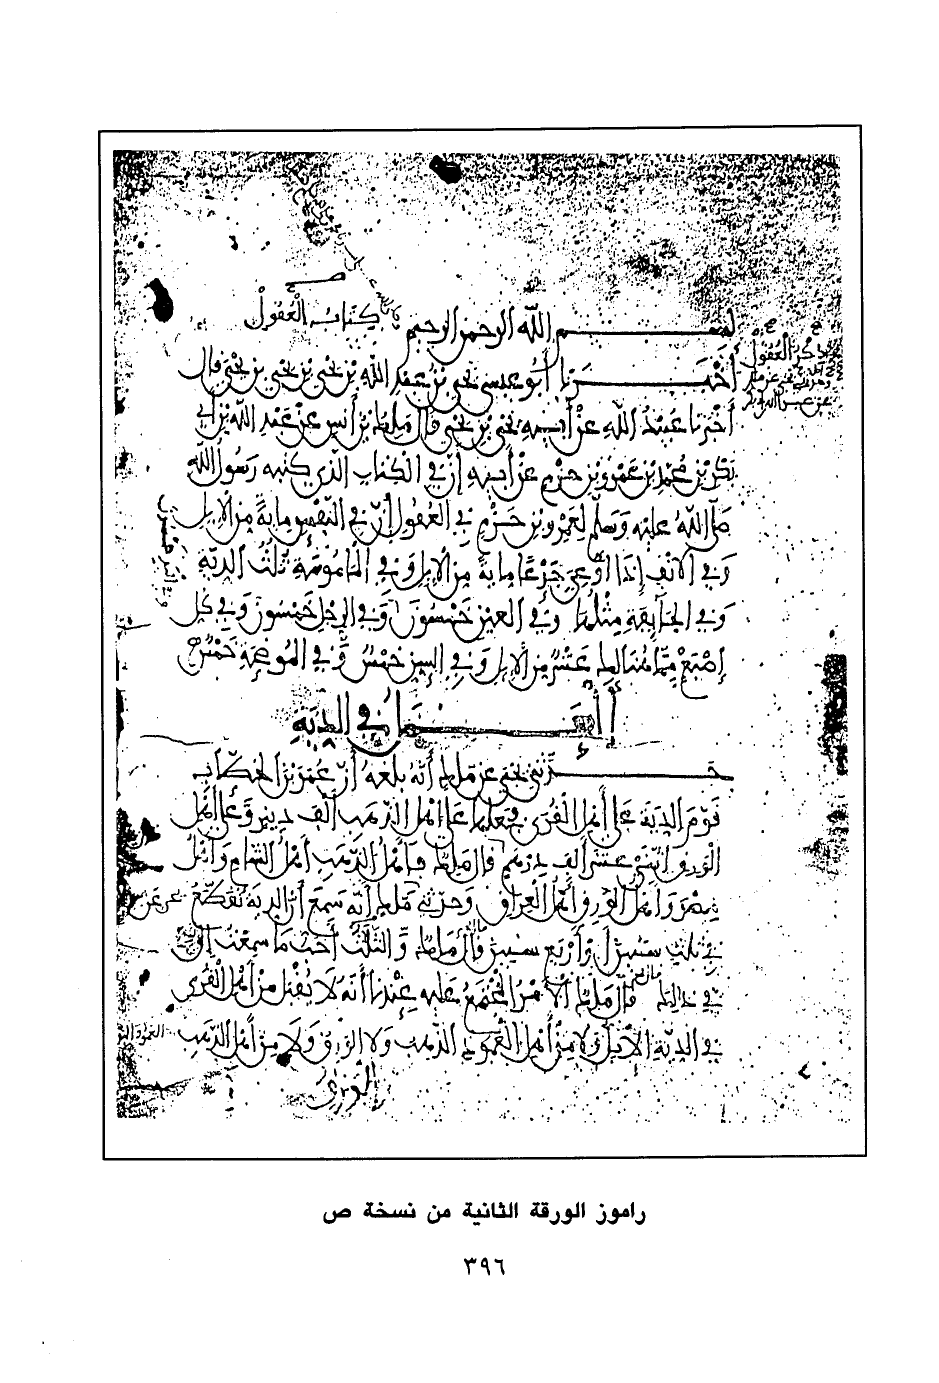 كتاب العقول
بسم الله الرحمن الرحيم
أخبرنا أبو عيسى يحيى بن عبد الله بن يحيى بن يحيى بن يحيى قال
أخبرنا عبيد الله عن أبيه يحيى بن يحيى قال مالك بن أنس عن عبد الله بن أبي
بكر بن محمد بن عمرو بن حزم عن أبيه أن في الكتاب الذي كتبه رسول الله
صلى الله عليه وسلم لعمرو بن حزم في العقول أن في النفس مائة من الإبل
وفي الأنف إذا أوعي جدعا مائة من الإبل وفي المأمومة ثلث الدية
وفي الجائفة مثلها وفي العين خمسون وفي الرجل خمسون وفي كل
إصبع مما هنالك عشر من الإبل وفي السن خمس وفي الموضحة خمس
العمل في الدية
حدثني يحيى عن مالك أنه بلغه أن عمر بن الخطاب
قوم الدية على أهل القرى فجعلها على أهل الذهب ألف دينر وعلى أهل
الورق اثني عشر ألف درهم قال مالك فأهل الذهب أهل الشام وأهل
مصر وأهل الورق أهل العراق وحدثني مالك أنه سمع أن الدية تقطع
في ثلث سنين أو أربع سنين قال مالك والثلث أحب ما سمعت إلي
في ذلك قال مالك الأمر المجتمع عليه عندنا أنه لا يقبل من أهل القرى
في الدية الإبل ولا من أهل العمود الذهب ولا الورق ولا من أهل الذهب
الورق
راموز الورقة الثانية من نسخة ص
٣٩٦